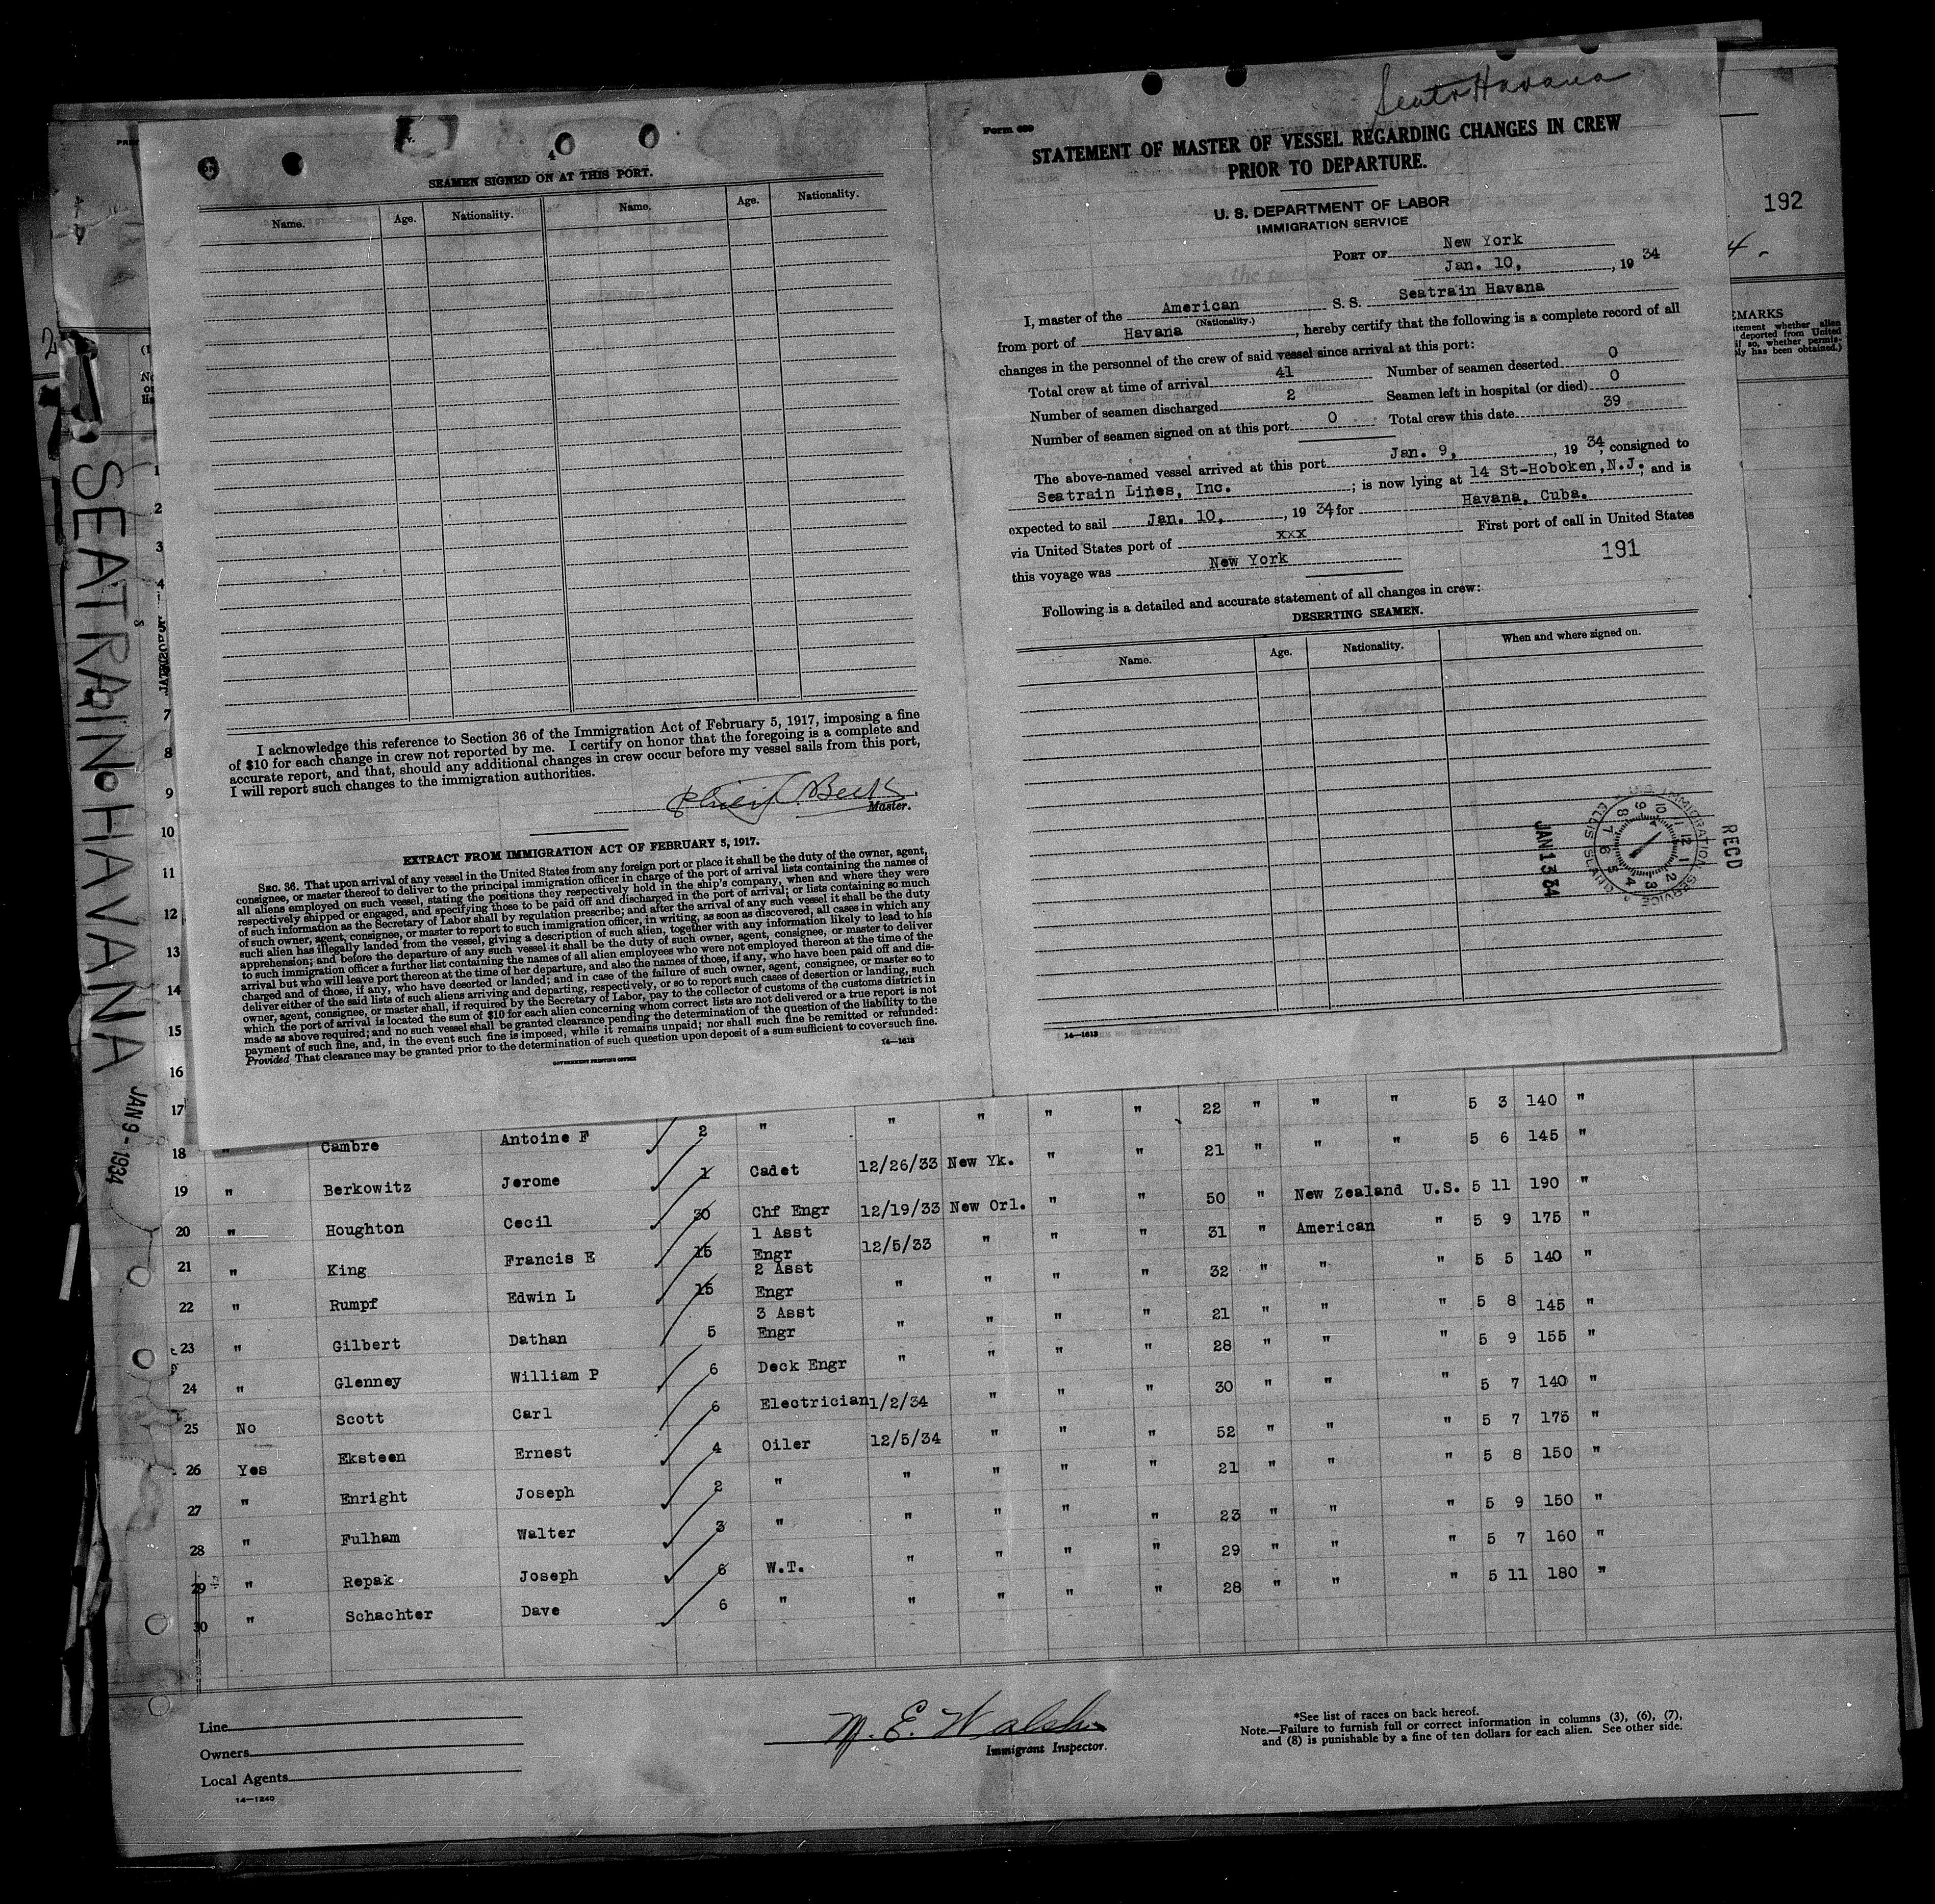 4
SEAMEN SIGNED ON AT THIS PORT.
Name. Age. Nationality. Name. Age. Nationality.
I acknowledge this reference to Section 36 of the Immigration Act of February 5, 1917, imposing a fine
of $10 for each change in crew not reported by me. I certify on honor that the foregoing is a complete and
accurate report, and that, should any additional changes in crew occur before my vessel sails from this port,
I will report such changes to the immigration authorities.
Master.
EXTRACT FROM IMMIGRATION ACT OF FEBRUARY 5, 1917.
SEC. 36. That upon arrival of any vessel in the United States from any foreign port or place it shall be the duty of the owner, agent,
consignee, or master thereof to deliver to the principal immigration officer in charge of the port of arrival lists containing the names of
all aliens employed on such vessel, stating the positions they respectively hold in the ship's company, when and where they were
respectively shipped or engaged, and specifying those to be paid off and discharged in the port of arrival; or lists containing so much
of such information as the Secretary of Labor shall by regulation prescribe; and after the arrival of any such vessel it shall be the duty
of such owner, agent, consignee, or master to report to such immigration officer, in writing, as soon as discovered, all cases in which any
such alien has illegally landed from the vessel, giving a description of such alien, together with any information likely to lead to his
apprehension; and before the departure of any such vessel it shall be the duty of such owner, agent, consignee, or master to deliver
to such immigration officer a further list containing the names of all alien employees who were not employed thereon at the time of the
arrival but who will leave port thereon at the time of her departure, and also the names of those, if any, who have been paid off and dis-
charged and of those, if any, who have deserted or landed; and in case of the failure of such owner, agent, consignee, or master so to
deliver either of the said lists of such aliens arriving and departing, respectively, or so to report such cases of desertion or landing, such
owner, agent, consignee, or master shall, if required by the Secretary of Labor, pay to the collector of customs of the customs district in
which the port of arrival is located the sum of $10 for each alien concerning whom correct lists are not delivered or a true report is not
made as above required; and no such vessel shall be granted clearance pending the determination of the question of the liability to the
payment of such fine, and, in the event such fine is imposed, while it remains unpaid; nor shall such fine be remitted or refunded:
Provided That clearance may be granted prior to the determination of such question upon deposit of a sum sufficient to cover such fine.
GOVERNMENT PRINTING OFFICE
14—1613
Seatr Havana
Form 689
STATEMENT OF MASTER OF VESSEL REGARDING CHANGES IN CREW
PRIOR TO DEPARTURE.
U. S. DEPARTMENT OF LABOR
IMMIGRATION SERVICE
PORT OF New York
Jan. 10, , 19 34
I, master of the American S. S. Seatrain Havana
(Nationality.)
from port of Havana , hereby certify that the following is a complete record of all
changes in the personnel of the crew of said vessel since arrival at this port:
Total crew at time of arrival 41 Number of seamen deserted 0
Number of seamen discharged 2 Seamen left in hospital (or died) 0
Number of seamen signed on at this port 0 Total crew this date 39
The above-named vessel arrived at this port Jan. 9, , 19 34, consigned to
Seatrain Lines, Inc. ; is now lying at 14 St-Hoboken,N.J. and is
expected to sail Jan. 10, , 19 34 for Havana, Cuba.
via United States port of xxx First port of call in United States
this voyage was New York
191
Following is a detailed and accurate statement of all changes in crew:
DESERTING SEAMEN.
Name. Age. Nationality. When and where signed on.
RECD
U.S. IMMIGRATION SERVICE
ELLIS ISLAND
JAN 13 34
14—1613
192
4 -
EMARKS
tement whether alien
deported from United
if so, whether permis-
ly has been obtained.)
2
SEATRAIN HAVANA
JAN 9 - 1934
1
2
3
4
7
8
9
10
11
12
13
14
15
16
17 " " " " " 22 " " " 5 3 140 "
18 " Cambre Antoine F 2 " " " " " 21 " " " 5 6 145 "
19 " Berkowitz Jerome 1 Cadet 12/26/33 New Yk. " " 50 " New Zealand U.S. 5 11 190 "
20 " Houghton Cecil 30 Chf Engr 12/19/33 New Orl. " " 31 " American " 5 9 175 "
21 " King Francis E 15 1 Asst Engr 12/5/33 " " " 32 " " " 5 5 140 "
22 " Rumpf Edwin L 15 2 Asst Engr " " " " 21 " " " 5 8 145 "
23 " Gilbert Dathan 5 3 Asst Engr " " " " 28 " " " 5 9 155 "
24 " Glenney William P 6 Deck Engr " " " " 30 " " " 5 7 140 "
25 No Scott Carl 6 Electrician 1/2/34 " " " 52 " " " 5 7 175 "
26 Yes Eksteen Ernest 4 Oiler 12/5/34 " " " 21 " " " 5 8 150 "
27 " Enright Joseph 2 " " " " " 23 " " " 5 9 150 "
28 " Fulham Walter 3 " " " " " 29 " " " 5 7 160 "
29 " Repak Joseph 6 W.T. " " " " 28 " " " 5 11 180 "
30 " Schachter Dave 6 " " " " "
Line
Owners
Local Agents
14—1240
M. E. Walsh
Immigrant Inspector.
*See list of races on back hereof.
Note.—Failure to furnish full or correct information in columns (3), (6), (7),
and (8) is punishable by a fine of ten dollars for each alien. See other side.